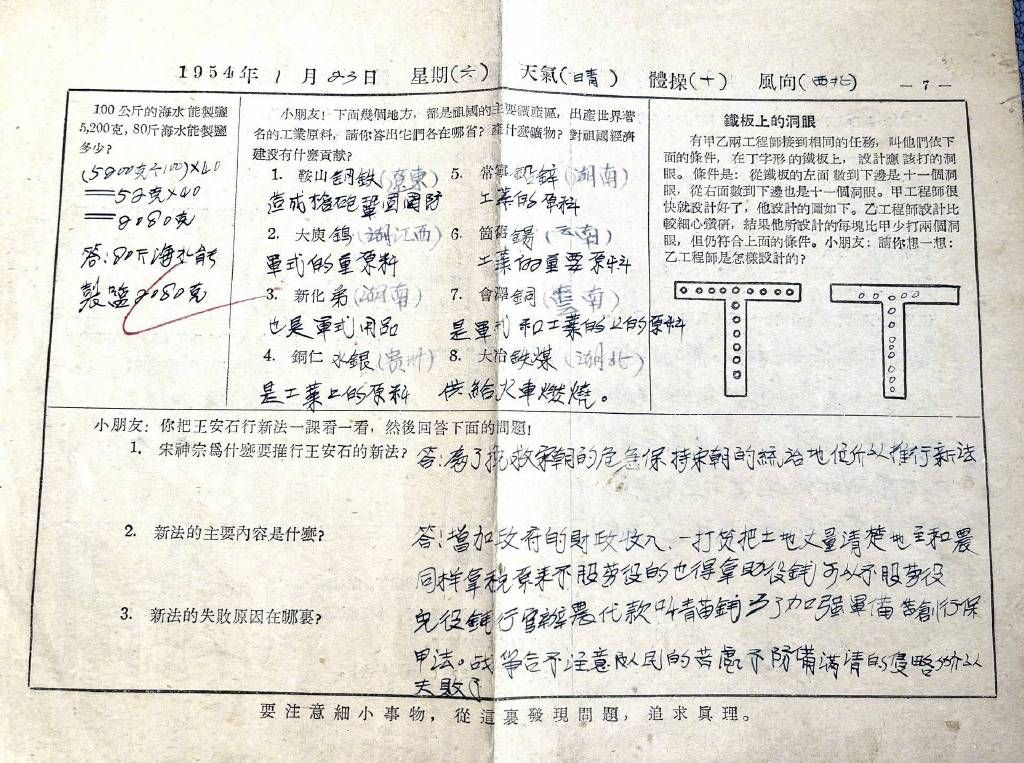 1954年 1 月 23日 星期(六) 天氣(晴) 體操(十) 風向(西北) —7—
100公斤的海水能製鹽
5,200克，80斤海水能製鹽
多少?
(5200克÷100)×40
=52克×40
=2080克
答:80斤海水能
製鹽2080克
小朋友! 下面幾個地方，都是祖國的主要礦產區，出產世界著
名的工業原料，請你答出它們各在哪省? 產什麼礦物? 對祖國經濟
建設有什麼貢獻?
1. 鞍山 鋼鉄(京東)
造成槍砲鞏固國防
2. 大庾 鎢(湖江西)
軍式的重原料
3. 新化 (湖南)
也是軍式用品
4. 銅仁 水銀(贵州)
是工業上的原料
5. 常寧 鋅(湖南)
工業的原料
6. 箇舊 錫(云南)
工業的重要原料
7. 會澤 銅(雲南)
是軍式和工業的上的原料
8. 大冶 鉄煤(湖北)
供給火車燃燒。
鐵板上的洞眼
有甲乙兩工程師接到相同的任務，叫他們依下
面的條件，在丁字形的鐵板上，設計應該打的洞
眼。條件是: 從鐵板的左面數到下邊是十一個洞
眼，從右面數到下邊也是十一個洞眼。甲工程師很
快就設計好了，他設計的圖如下。乙工程師設計比
較細心鑽研，結果他所設計的每塊比甲少打兩個洞
眼，但仍符合上面的條件。小朋友: 請你想一想:
乙工程師是怎樣設計的?
小朋友: 你把王安石行新法一課看一看，然後回答下面的問題!
1. 宋神宗爲什麼要推行王安石的新法?
答:為了挽救宋朝的危急保持宋朝的統治地位所以推行新法
2. 新法的主要內容是什麼?
答:增加政府的財政收入.一打貨把土地丈量清楚地主和農
同样拿税原来不服劳役的也得拿助役錢可以不服劳役
3. 新法的失敗原因在哪裏?
免役錢行官辦農代款叫青苗錢為了加强軍備苦創行保
甲法。战爭合予注意人民的苦處予防備滿清的侵略所以
失敗了
要注意細小事物，從這裏發現問題，追求眞理。